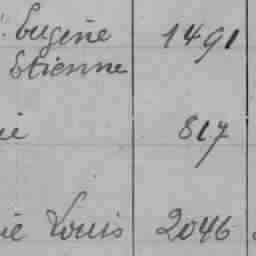 Eugène 1491
Etienne
ie 817
ie Louis 2046